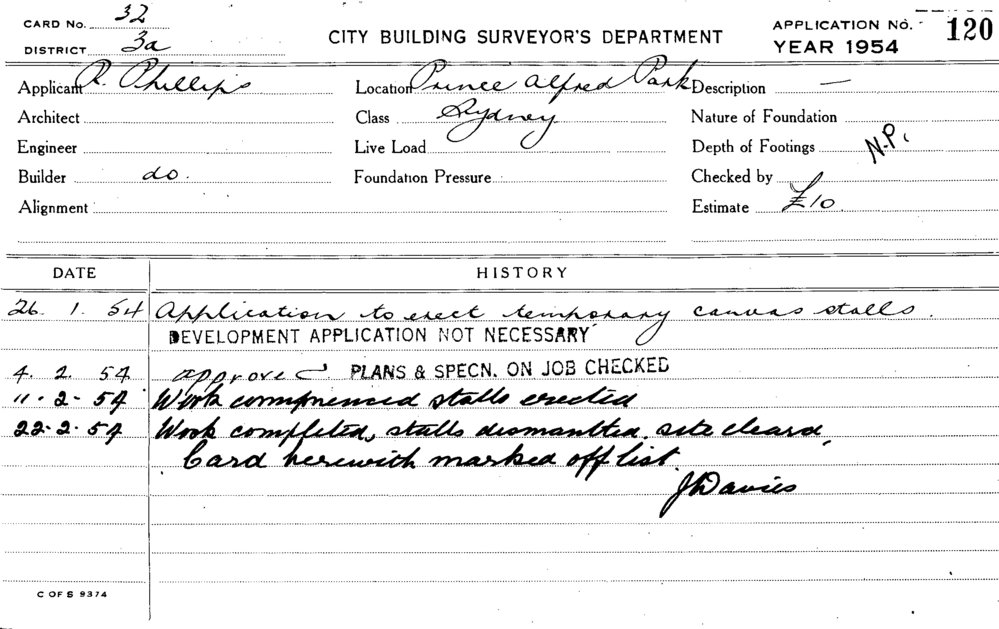 CARD No. 32
DISTRICT 3a
CITY BUILDING SURVEYOR'S DEPARTMENT
APPLICATION No. 120
YEAR 1954
Applicant R. Phillips Location Prince Alfred Park Description —
Architect Class Sydney Nature of Foundation
Engineer Live Load Depth of Footings N.P.
Builder do. Foundation Pressure Checked by
Alignment Estimate £10.
DATE HISTORY
26. 1. 54 Application to erect temporary canvas stalls.
DEVELOPMENT APPLICATION NOT NECESSARY
4. 2. 54 approved PLANS & SPECN. ON JOB CHECKED
11-2-54 Work commenced stalls erected
22-2-54 Work completed, stalls dismantled. site cleard,
Card herewith marked off list.
J Davies
C OF S 9374